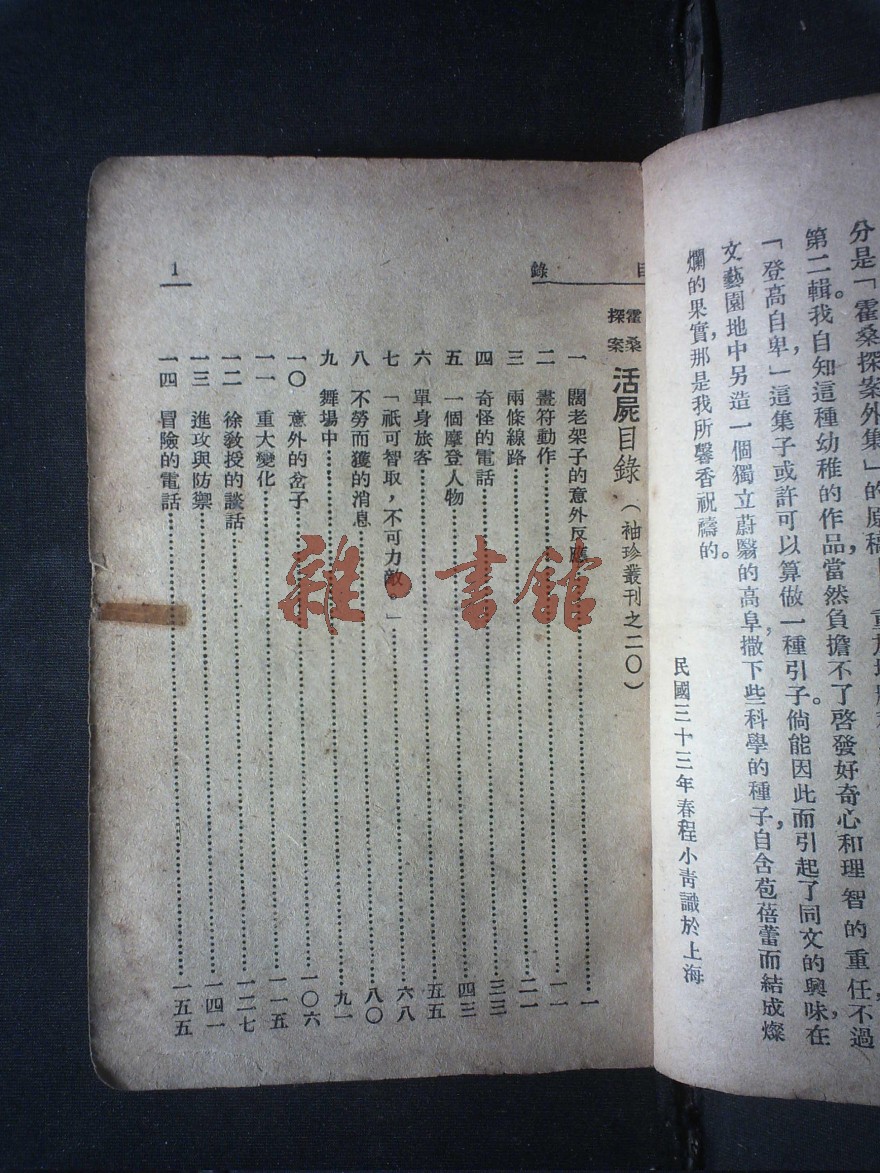 分是「霍桑探案外集」的原稿
第二輯。我自知這種幼稚的作品，當然負擔不了啓發好奇心和理智的重任，不過
「登高自卑」，這集子或許可以算做一種引子。倘能因此而引起了同文的興味，在
文藝園地中另造一個獨立蔚翳的高阜，撒下些科學的種子，自含苞蓓蕾而結成燦
爛的果實，那是我所馨香祝禱的。
民國三十三年春程小青識於上海
目錄
1
霍桑探案 活屍目錄（袖珍叢刊之二〇）
一 闊老架子的意外反應……一
二 畫符動作……一一
三 兩條線路……二一
四 奇怪的電話……三三
五 一個摩登人物……四三
六 單身旅客……五五
七 「祇可智取，不可力敵。」……六八
八 不勞而獲的消息……八〇
九 舞場中……九一
一〇 意外的岔子……一〇六
一一 重大變化……一一五
一二 徐敎授的談話……一二七
一三 進攻與防禦……一四一
一四 冒險的電話……一五五
雜·書館